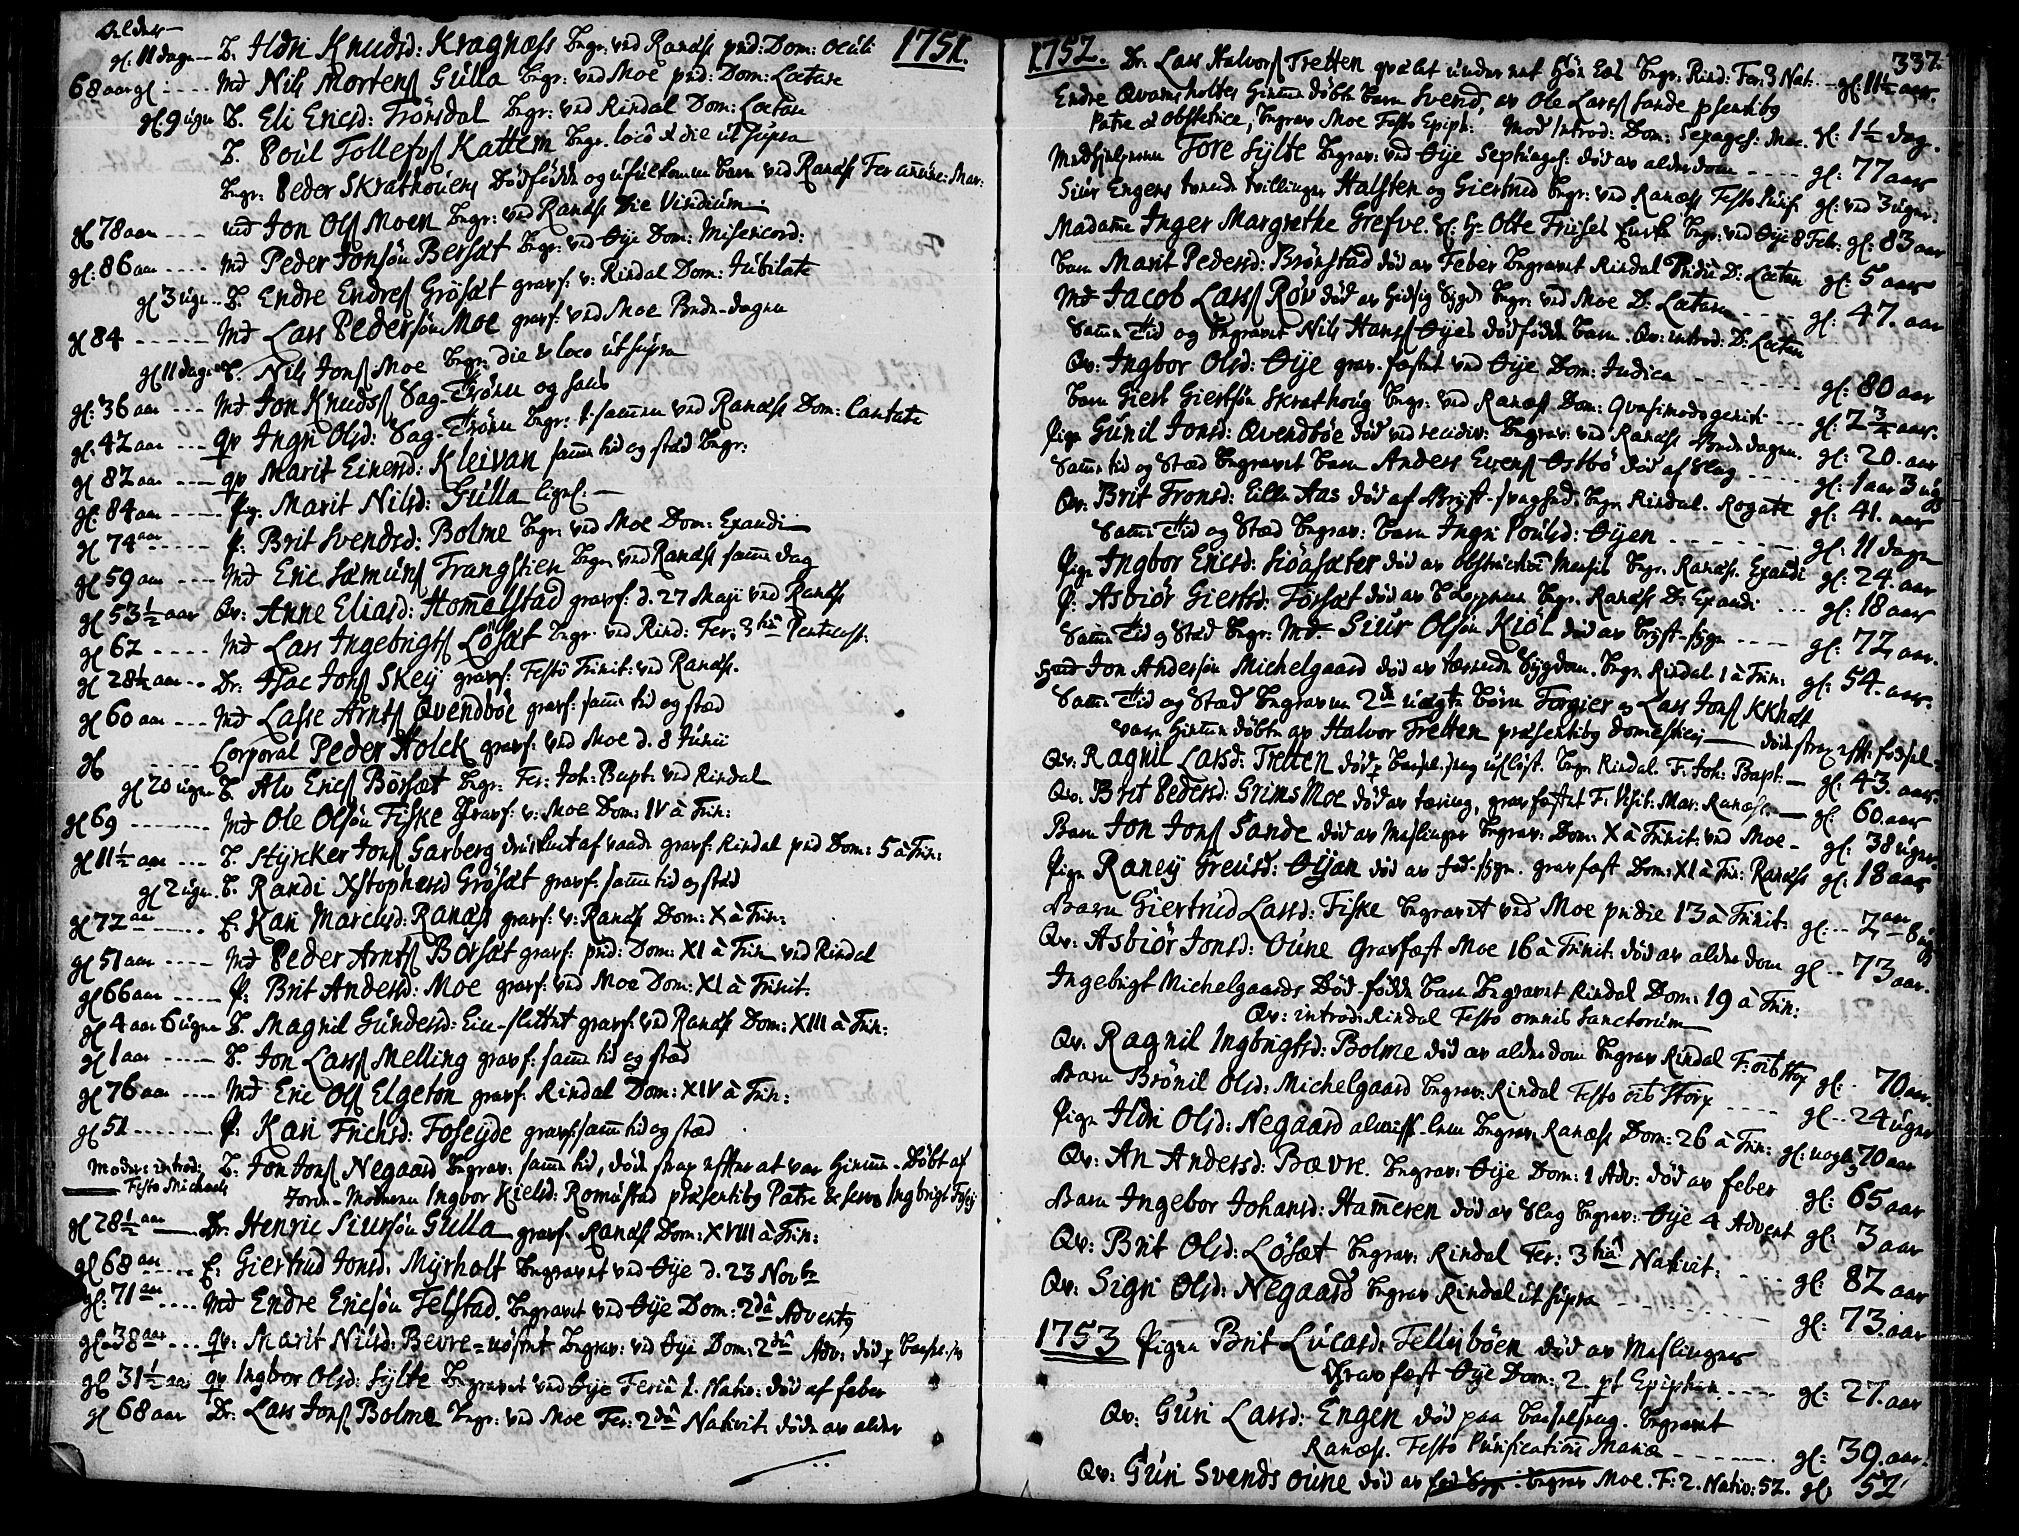 Alder
gl: 11 dage -- B. Ildri Knudsd: Kragnæss Begr: ved Ranæss prid: Dom: Oculi 1751.
68 aar gl ---- Md Nils Mortens Gulla Begr: ved Moe prid: Dom: Lætare
gl. 9 ugu B. Eli Ericsd: Trönsdal Begr: ved Rindal Dom: Lætare
B. Poul Tollefs Kattem Begr. loco & die ut supra
Begr: Peder Skrathouens Dödfödde og ufulkomne Barn ved Ranæss Fer: anunc: Mar:
gl 78 aar ---- Jon Ols Moen Begr: ved Ranæss Die Viridium.
gl: 86 aar ---- Md Peder Jonsön Bersæt Begr: ved Øye Dom: Misericord:
gl 3 ugu -- B. Endre Endres Grösæt gravf: v: Rindal Dom: Jubilate
gl 84 ----- Md Lars Pedersön Moe gravf. ved Moe Bede-dagen
gl 11 dage B. Nils Jons Moe Begr: die & loco ut supra
gl: 36 aar --- Md Jon Knuds Sag-Trönu og hans
gl: 42 aar --- qv Ingri Olsd: Sag-Trönu Begr: t.sammen ved Ranæss Dom: Cantate
gl 82 aar --- qv Marit Einersd: Kleivan samme tid og stæd Begr:
gl: 84 aar ---- P: Marit Nilsd: Gulla ligel. —
gl 74 aar ----- P: Brit Svendsd: Bolme Begr: ved Moe Dom: Exaudi
gl 59 aar ---- Md Eric Sæmuns Trangstien Begr. ved Ranæss samme dag
gl 53 ½ aar Qv: Anne Eliasd: Homelstad gravf: d. 27 Maji ved Ranæss
gl 62 ---- Md Lars Ingebrigts Lösæt Begr. ved Rind: Fer: 3tia Pentecost.
gl 28 ½ aar -- Dr: Isac Jons Skey gravf: Festo Trinit: ved Ranæss.
gl 60 aar --- Md Lasse Arnts Qvendböe gravf: samme tid og stæd
gl ---- Corporal Peder Holck gravf: ved Moe d. 8 Junii
gl 20 ugu B. Alv Erics Börsæt Begr: Fer: Joh: Bapt: ved Rindal
gl 69 ------- Md Ole Olsön Fiske Gravf: v: Moe Dom: IV à Trin:
gl 11 ½ aar --- B. Stÿrcker Jons Garberg af vaade gravf: Rindal prid Dom: 5 à Trin:
gl 2 ugu. B. Randi Xstophersd Grösæt gravf: samme tid og stæd
gl 72 aar ----- E: Kari Marcusd: Ranæss gravf: v: Ranæss Dom: X à Trin:
gl 51 aar ---- Md Peder Arnts Borsæt gravf: prid: Dom: XI à Trin ved Rindal
gl 66 aar ----- P: Brit Andersd: Moe gravf: ved Moe Dom: XI à Trinit:
gl 4 aar 6 ugu B. Magnil Gundersd: gravf: ved Ranæss Dom: XIII à Trin:
gl 1 aar ----- B. Jon Lars Melling gravf: samme tid og stæd
gl 76 aar ---- Md Eric Ols Elgeton gravf: Rindal Dom: XIV à Trin:
gl 51 ------- P: Kari Frichsd: Foseyde gravf: samme tid og stæd
Moder: introd: B. Jon Jons Negaard Begrav: samme tid, döde strax efter at var Hiemme-Döbt af
Festo Michaelis Jorde-Moderen Ingbor Kielsd: Romustad præsentibg Patre & servo Ingbrigt
gl 28 ½ aar —— Dr: Henric Siursön Gulla gravf: Ranæss Dom: XVIII à Trin:
gl 68 aar ----- E: Giertrud Jonsd: Myrholt Begravet ved Øye d. 23 Novbr
gl: 71 aar ---- Md Endre Ericsön Telstad. Begravet ved Øye Dom: 2da Adventg
gl: 38 aar --- qv: Marit Nilsd: Bevre- Begrav: ved Øye Dom: 2da Adv: död
gl 31 ½ aar qv Ingbor Olsd: Sylte Begravet ved Øye Feria 1. Nativ: död af feber
gl 68 aar Dr: Lars Jons Bolme Begr: ved Moe Fer: 2da Nativit: döde av alder
337.
1752. Dr. Lars Halvors Tretten qvælet under Begr: Rind: Fer: 3 Nat. -- gl: 11 ½ aar.
Endre Qvamsholtes hiemme döbte Barn Svend, av Ole Larss Sande psentibg
Patre & obstetrice, Begrav Moe Festo Epiph: Mod Introd: Dom: Sexages: Moe. gl: 1 ½ dag.
Medhielperen Tore Sylte Begrav: ved Øye Septuages: död av alderdom ---- gl: 77 aar
Siur Engens tvende tvillinger Halsten og Giertrud Begr: ved Ranæss Festo Purif. gl: ved 3 uger:
Madame Inger Margrethe Grefve. S: Hr Otte Friises Enke Begr: ved Øye 8 Febr: gl: 83 aar
Barn Marit Pedersd: Brönstad död av Feber Begravet Rindal Pridie D: Lætare gl: 5 aar
Md Jacob Larss Röv död av hidsig Sygd. Begr: ved Moe D: Lætare ---- gl: 47. aar
Samme Tid og Begravet Nils Hanss Øyes dödfödde Barn. Qv: introd: D: Lætare
Qv: Ingbor Olsd: Øye grav-fæstet ved Øye Dom: Judica ------ gl: 80 aar
Barn Giert Giertsön Skrathoug Begr: ved Ranæss Dom: Qvasimodogenit: --- gl: 2 ¾ aar.
Pige Gunil Jonsd: Qvendböe död ved Begrav: ved Ranæss Bede dagen. gl: 20. aar
Samme tid og Stæd Begravet Barn Anders Evens Østbö död af Slag ---- gl: 1 aar 3 ug
Qv: Brit Tronsd: Lille Aas död af Bryst-svaghed. Begr. Rindal. Rogate gl: 41. aar
Samme Tid og Stæd Begrav: Barn Ingri Poulsd: Øyen ------- gl: 11 dage
Pige Ingbor Ericsd: Siöasæter död av obstruction Mensis Begr. Ranæss. Exaudi gl: 24. aar
P: Asbiör Giertsd: Försæt död av Begr. Ranæss D: Exaudi --- gl: 18 aar
Samme Tid og Stæd Begr: Md. Siur Olsön Kiöl död av Bryst-syge ---- gl: 72 aar.
Jon Andersön Michelgaard död av tærende Sygdom. Begr Rindal 1 à Trin: gl: 54. aar.
Samme Tid og Stæd Begraven 2de uægte börn Torgier og Lars Jons
varen hiemme döbte av Halvor Tretten præsentibg domesticis —— döde strax eft: födsel
Qv: Ragnil Larsd: Tretten död Begr. Rindal. F: Joh: Bapt: — gl: 43. aar.
Qv: Brit Pedersd: Grims Moe död av tæring, gravfæstet F: Visit: Mar: Ranæss. — gl: 60. aar
Barn Jon Jons Sande död av Meslinger Begrav: Dom: X à Trinit: ved Moe - gl: 38 uger
Pige Raney Treusd: Øyan död av -syge. gravfæst Dom: XI à Trin: Ranæss gl: 18 aar
Barn Giertrud Larsd: Fiske Begravet ved Moe pridie 13 à Trinit: gl: -- 2 aar 8 ug
Qv: Asbiör Jonsd: Oune Gravfæst Moe 16 à Trinit: död av alderdom gl -- 73 aar.
Ingebrigt Michelgaards Död-födde Barn Begravet Rindal Dom: 19 à Trin:
Qv: introd: Rindal Festo omnis Sanctorum
Qv: Ragnil Ingbrigtsd: Bolme död av alderdom Begrav Rindal F: gl: - 70 aar.
Barn Brönil Olsd: Michelgaard Begrav: Rindal Festo ---- gl -- 24 uger
Pige Ildri Olsd: Negaard Begrav. Ranæss Dom: 26 à Trin: gl: 70 aar
Qv: An Andersd: Bævre. Begrav: Øye Dom: 1 Adv: död av feber gl: 65 aar
Barn Ingebor Johansd: Hameren död av Slag Begrav: Øye 4 Advent gl: 3 aar
Qv: Brit Olsd: Lösæt Begrav: Rindal Fer: 3tia Nativit: --- gl: 82 aar
Qv: Sigri Olsd: Negaard Begrav Rindal ut supra ------ gl: 73. aar
1753 Pigen Brit Lucasd: Telliisböen död av Meslinger
Gravfæst Øye Dom: 2. pt Epiphan ---- gl: 27. aar
Qv: Guri Larsd: Engen död paa Barselseng. Begravet
Ranæss. Festo Purificationis Mariæ ----- gl: 39. aar.
Qv: Guri Svends Oune död av Begrav Moe. F: 2. Nativ: 52. gl: 52